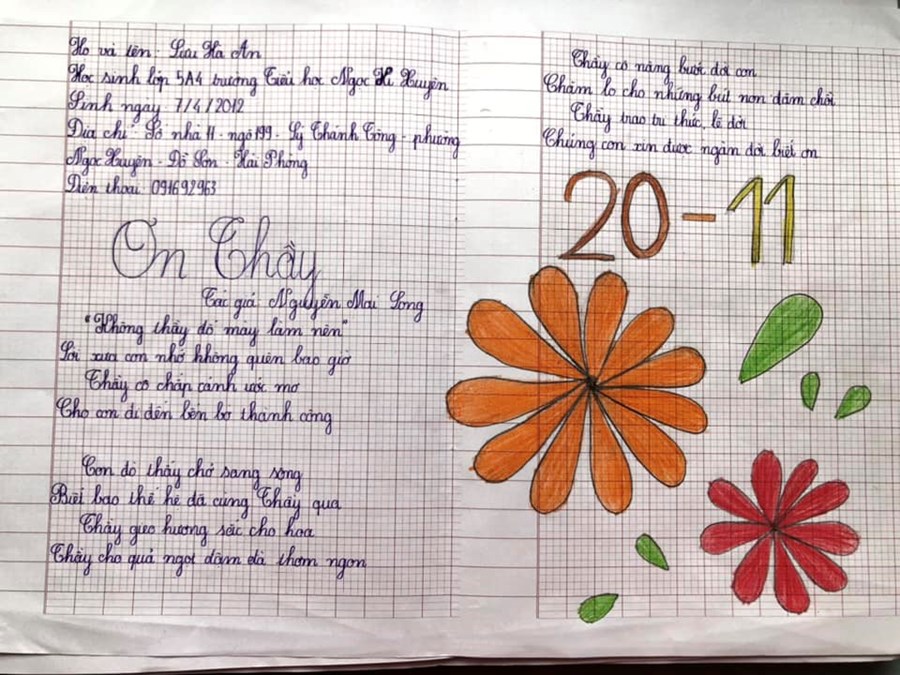 Họ và tên: Lưu Hà An
Học sinh lớp 5A4 trường Tiểu học Ngọc Xuyên
Sinh ngày 7/4/2012
Địa chỉ: Số nhà 11 - ngõ 199 - Lý Thánh Tông - phường
Ngọc Xuyên - Đồ Sơn - Hải Phòng
Điện thoại 091692963
Ơn Thầy
Tác giả Nguyễn Mai Long
"Không thầy đố mày làm nên"
Lời xưa con nhớ không quên bao giờ
Thầy cô chắp cánh ước mơ
Cho con đi đến bến bờ thành công
Con đò thầy chở sang sông
Biết bao thế hệ đã cùng Thầy qua
Thầy gieo hương sắc cho hoa
Thầy cho quả ngọt đậm đà thơm ngon
Thầy cô nâng bước đời con
Chăm lo cho những bút non đâm chồi
Thầy trao tri thức, lẽ đời
Chúng con xin được ngàn đời biết ơn
20-11